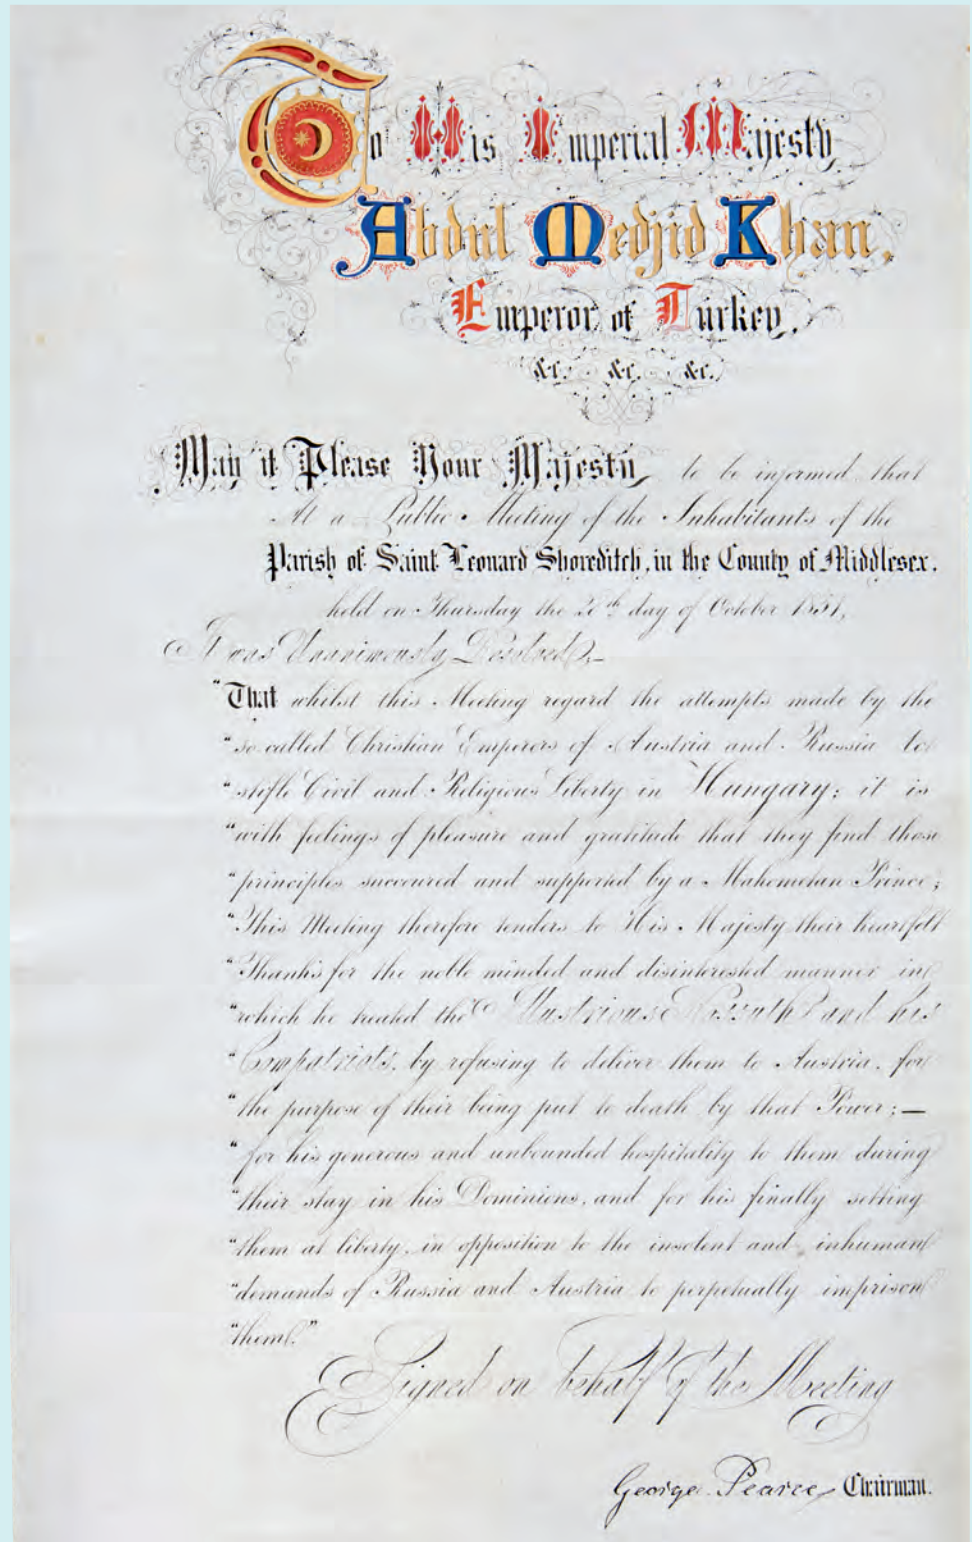 To His Imperial Majesty
Abdul Medjid Khan,
Emperor of Turkey,
&c. &c. &c.
May it Please Your Majesty, to be informed that
At a Public Meeting of the Inhabitants of the
Parish of Saint Leonard Shoreditch, in the County of Middlesex.
held on Thursday the 20th day of October 1851,
It was Unanimously Resolved,—
"That whilst this Meeting regard the attempts made by the
"so called Christian Emperors of Austria and Russia to
"stifle Civil and Religious Liberty in Hungary; it is
"with feelings of pleasure and gratitude that they find those
"principles succoured and supported by a Mahometan Prince;
"This Meeting therefore tenders to His Majesty their heartfelt
"Thanks for the noble minded and disinterested manner in
"which he treated the Illustrious Kossuth and his
"Compatriots, by refusing to deliver them to Austria, for
"the purpose of their being put to death by that Power;—
"for his generous and unbounded hospitality to them during
"their stay in his Dominions, and for his finally setting
"them at liberty, in opposition to the insolent and inhuman
"demands of Russia and Austria to perpetually imprison
"them."
Signed on behalf of the Meeting
George Pearce, Chairman.